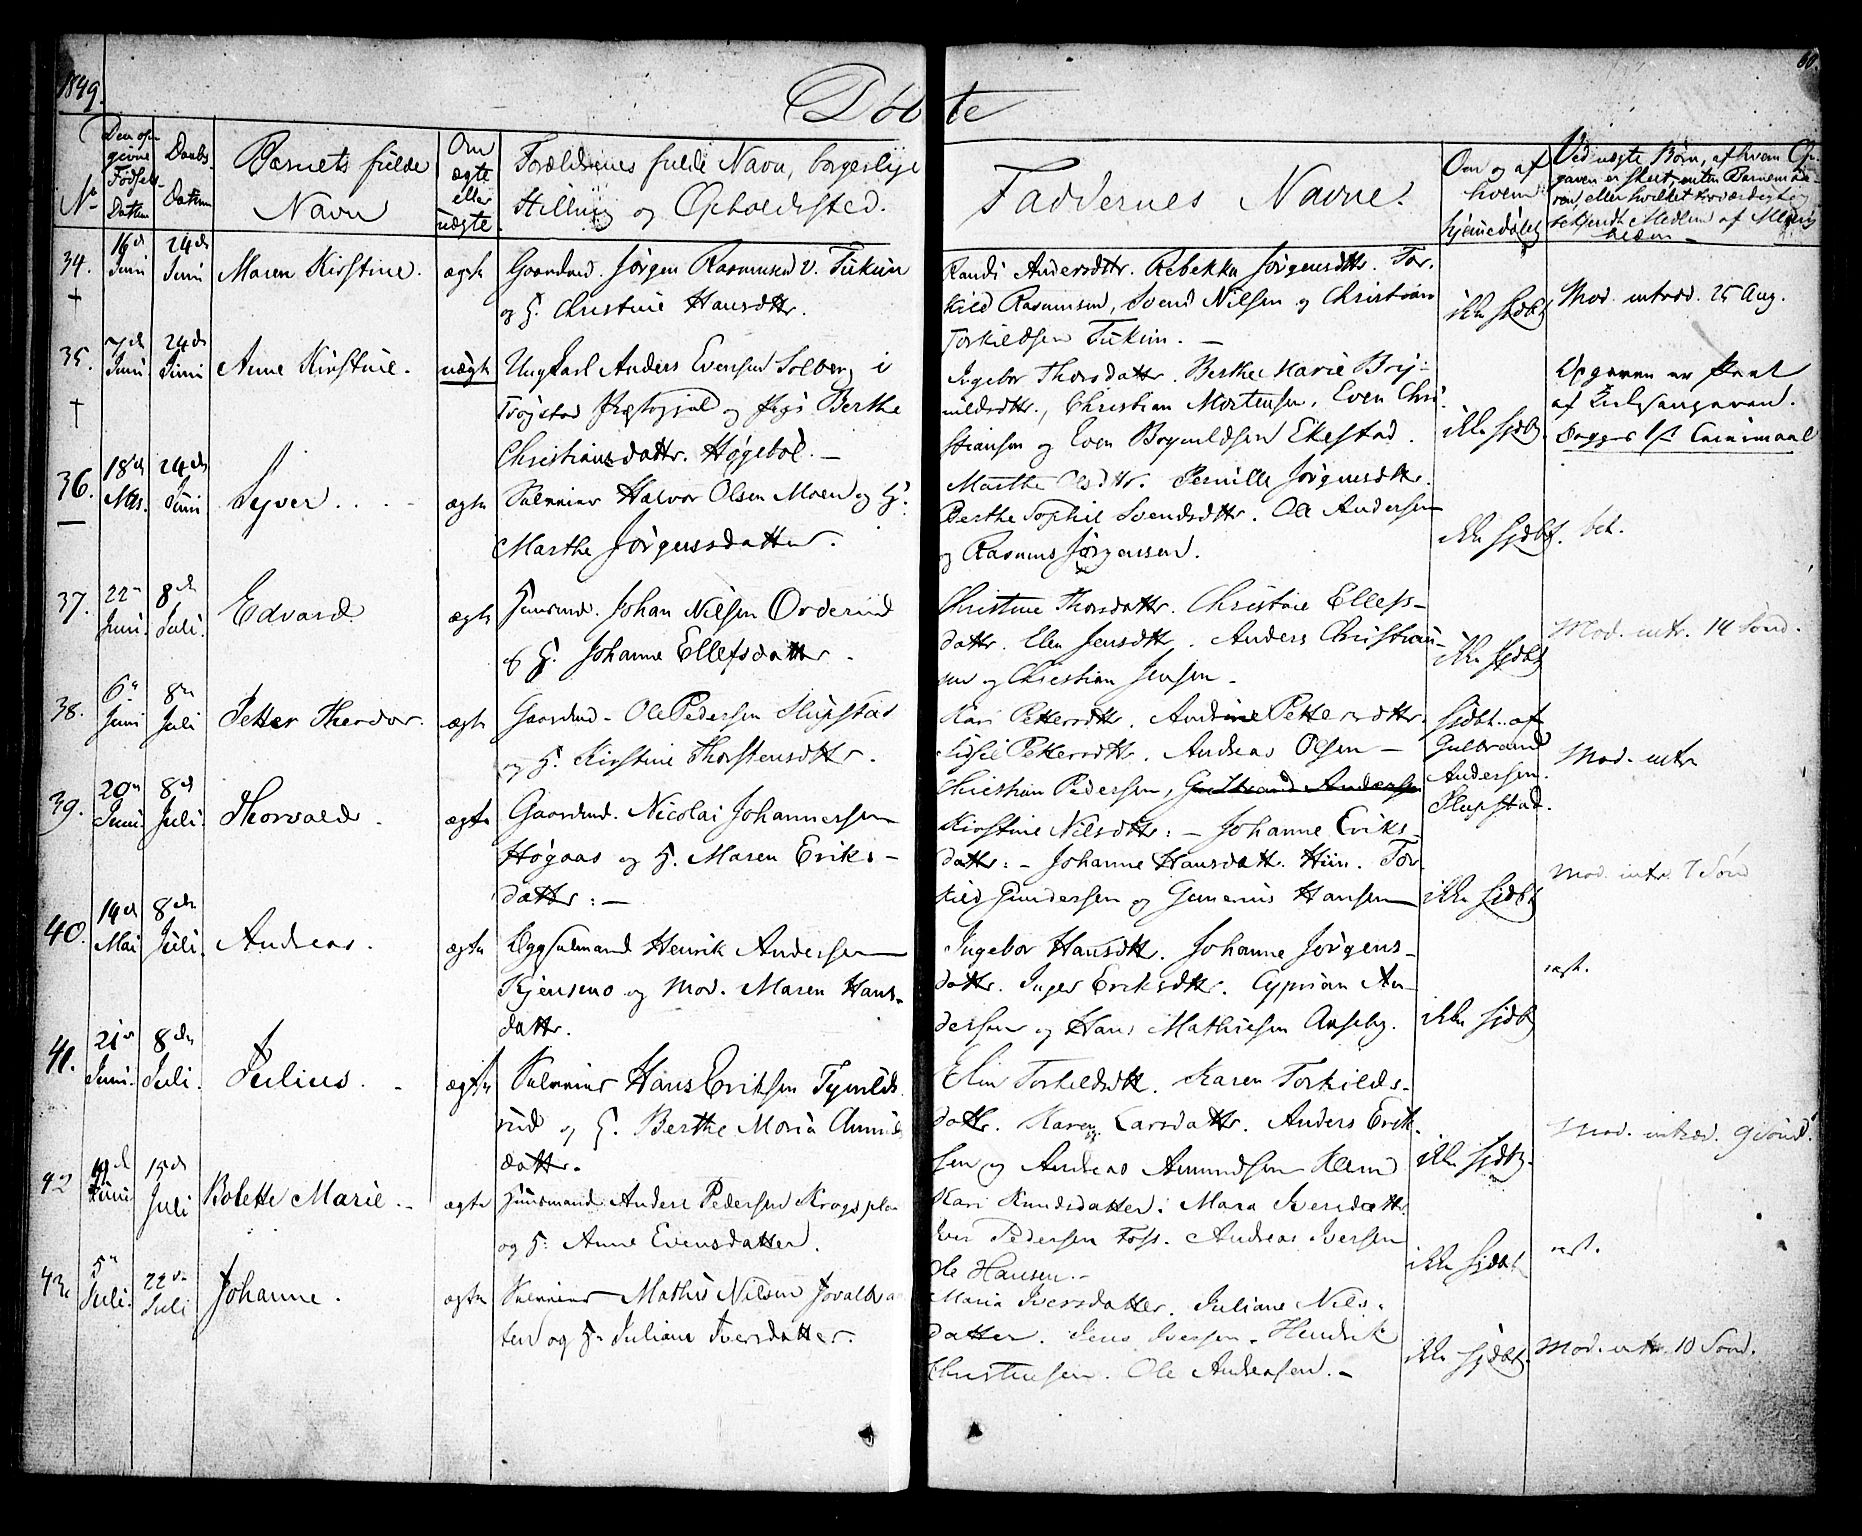 1849.
60.
Döbte
No
Den op-
givne
Fødsels
Datum
Daabs
Datum
Barnets fulde
Navn
Om
ægte
eller
uægte.
Forældrenes fulde Navn, borgerlige
Stilling og Opholdssted.
Faddernes Navne.
Om og af
hvem
hjemmedøbt
Ved uægte Børn, af hvem Op-
gaven er skeet, enten Barnemode-
ren, eller hvilket troværdigt og
bekjendt Medlem af Menig-
heden
34.
16de Juni
24de Juni
Maren Kirstine.
ægte
Gaardmd. Jörgen Rasmussen v. Tukun
og H. Christine Hansdttr.
Randi Andersdttr. Rebekka Jörgensdttr. Tor-
kild Rasmussen, Svend Nilsen og Christian
Torkildsen Tukun. —
ikke hjdbt
Mod. introd. 25 Aug.
35.
7de Juni
24de Juni
Anne Kirstine.
uægte
Ungkarl Anders Evensen Solberg i
Tröjstad Præstegjæld og Pige Berthe
Christiansdattr. Högeböl. —
Ingebor Thorsdattr. Berthe Marie Bryn-
nildsdttr., Christian Mortensen, Even Chri-
stiansen og Even Brynildsen Ekestad.
ikke hjdbt.
Opgaven er skeet
af Kirkesangeren.
Begges 1ste Leiermaal
36.
18de Mts.
24de Juni
Syver. . . -
ægte
Selveier Halvor Olsen Moen og H.
Marthe Jörgensdatter.
Marthe Olsdttr. Pernille Jörgensdttr.
Berthe Sophie Svendsdttr. Ole Andersen
og Rasmus Jörgensen.
ikke hjdbt.
bet.
37.
22de Juni.
8de Juli.
Edvard
ægte
Husmd. Johan Nilsen Orderud
og H. Johanne Ellefsdattr.
Christine Thorsdattr. Christine Ellefs-
dattr. Elen Jensdttr. Anders Christian-
sen og Christian Jensen -
ikke hjdbt
Mod. intr. 14 Sönd.
38.
6te Juni
8de Juli
Petter Theodor.
ægte
Gaardmd - Ole Pedersen Slupstad
og H. Kirstine Thorstensdttr.
Kari Pettersdttr. Andrine Pettersdttr.
Sidsel Pettersdttr. Andreas Olsen -
Christian Pedersen, Gulbrand Andersen
hjdbt. af
Gulbrand
Andersen
Slupstad.
Mod. intr
39.
20de Juni
8de Juli.
Thorvald.
ægte
Gaardmd. Nicolai Johannessen
Högaas og H. Maren Eriks-
dattr: —
Kirstine Nilsdttr: - Johanne Eriks-
dattr: - Johanne Hansdatt. Hün. Tor
kild Gundersen og Gunerius Hansen
ikke hjdbt
Mod. intr. 7 Sönd
40.
14de Mai
8de Juli.
Andreas.
ægte
Bygselmand Henrik Andersen
Kjenseno og Mod. Maren Hans-
dattr.
Ingebor Hansdtt. Johanne Jörgens-
dattr. Inger Eriksdttr. Cyprian An-
dersen og Hans Mathiesen Aaseby.
ikke hjdbt
rest.
41.
21de Juni.
8de Juli.
Julius.
ægte
Selveier Hans Eriksen Tymilds
rud og H. Berthe Maria Amunds
dattr.
Elin Torkildsdtt. Karen Torkilds-
dattr. Karen Larsdattr. Anders Erik-
sen og Andreas Amundsen
ikke hjdbt.
Mod. introd. 9 Sönd.
42
Juni
15de Juli
Bolette Marie.
ægte
Husmand Anders Pedersen Krogspla
og H. Anne Evensdatter.
Kari Knudsdatter: Mara Iversdattr.
Iver Pedersen Foss. Andreas Iversen
Ole Hansen. -
ikke hjdbt
rest.
43.
5te Juli.
22de Juli
Johanne.
ægte
Selveier Mathis Nilsen Jovalbra
ten og H. Juliane Iversdatter.
Maria Iversdatter. Juliane Nils-
datter. Jens Iversen. Hendrik
Christensen. Ole Andersen. -
ikke hjdbt.
Mod. intr. 10 Sönd.